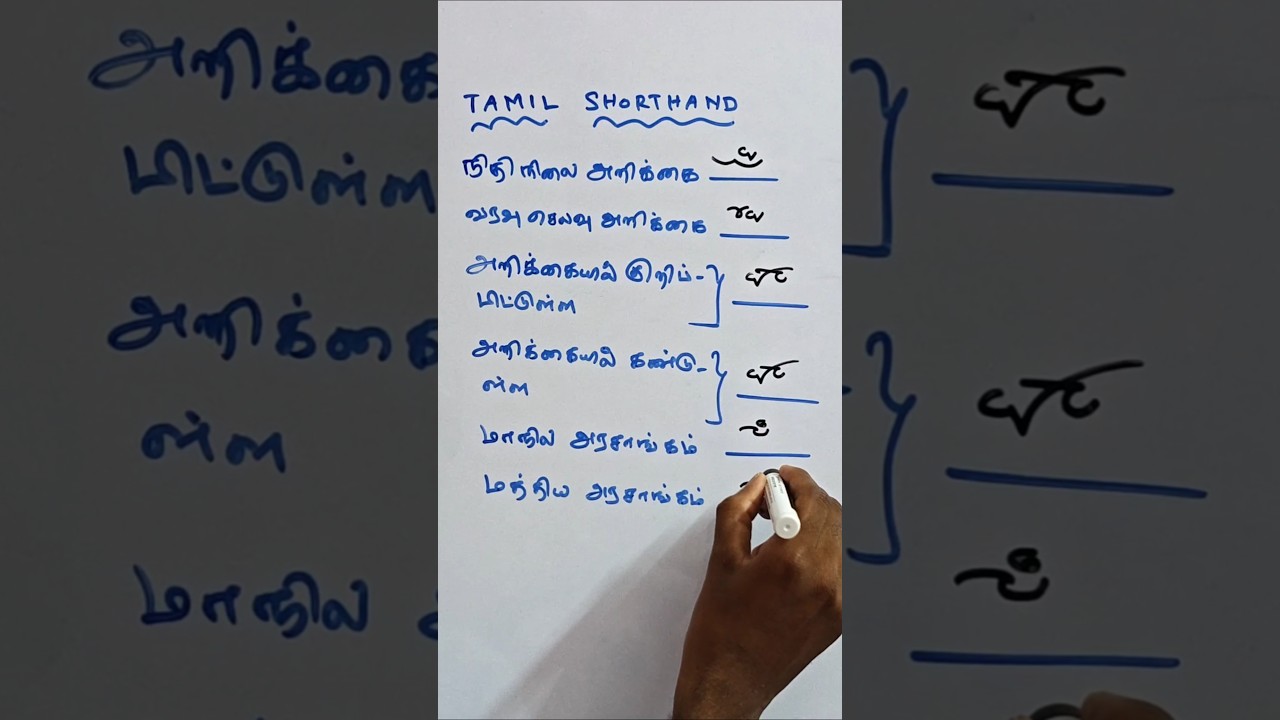 TAMIL SHORTHAND
நிதிநிலை அறிக்கை
வரவு செலவு அறிக்கை
அறிக்கையில் குறிப்-
பிட்டுள்ள
அறிக்கையில் கண்டு-
ள்ள
மாநில அரசாங்கம்
மத்திய அரசாங்கம்